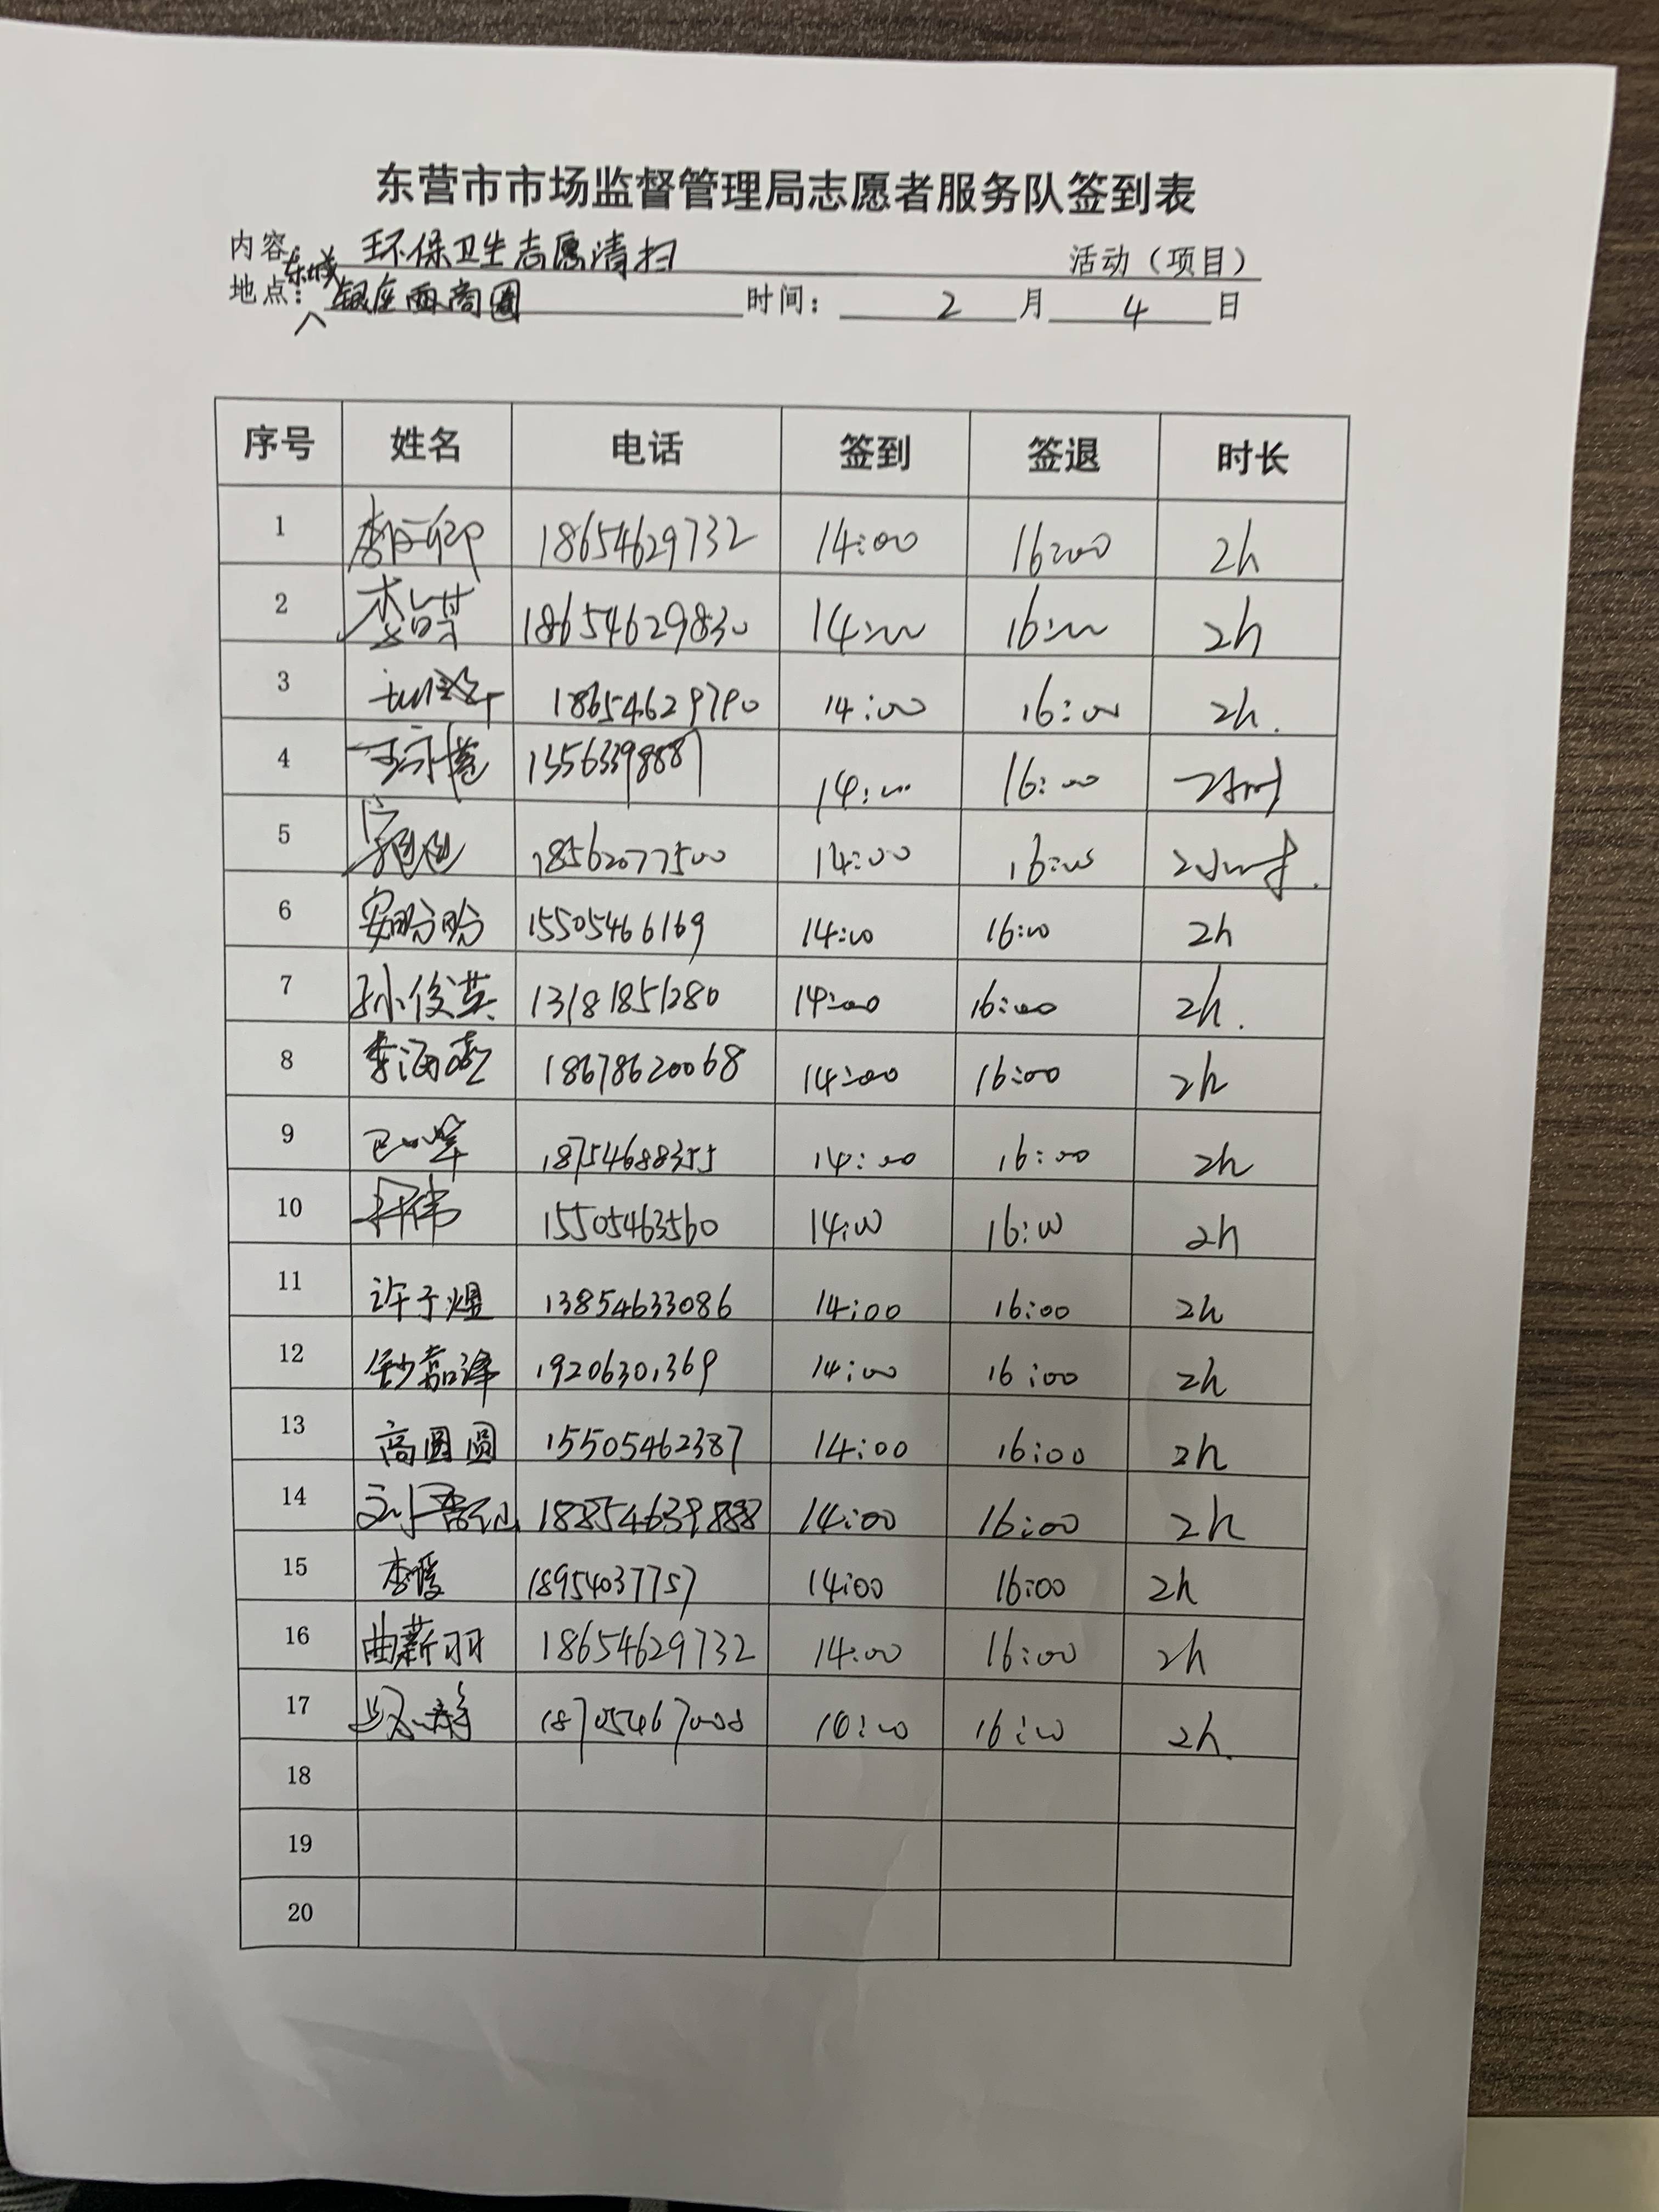 东营市市场监督管理局志愿者服务队签到表
内容: 环保卫生志愿清扫 活动（项目）
地点: 东城银座西商圈 时间: 2 月 4 日
序号 姓名 电话 签到 签退 时长
1 18654629732 14:00 16:00 2h
2 18654629830 14:00 16:00 2h
3 18654629790 14:00 16:00 2h.
4 14:00 16:00 2小时
5 18562077500 14:00 16:00 2小时.
6 安盼盼 15505466169 14:00 16:00 2h
7 孙俊英 13181851280 14:00 16:00 2h.
8 18678620068 14:00 16:00 2h
9 18754688355 14:00 16:00 2h
10 15505463560 14:00 16:00 2h
11 许子煜 13854633086 14:00 16:00 2h
12 19206301369 14:00 16:00 2h
13 高圆圆 15505462387 14:00 16:00 2h
14 18854639888 14:00 16:00 2h
15 李媛 18954037757 14:00 16:00 2h
16 曲薪羽 18654629732 14:00 16:00 2h
17 16:00 2h.
18
19
20